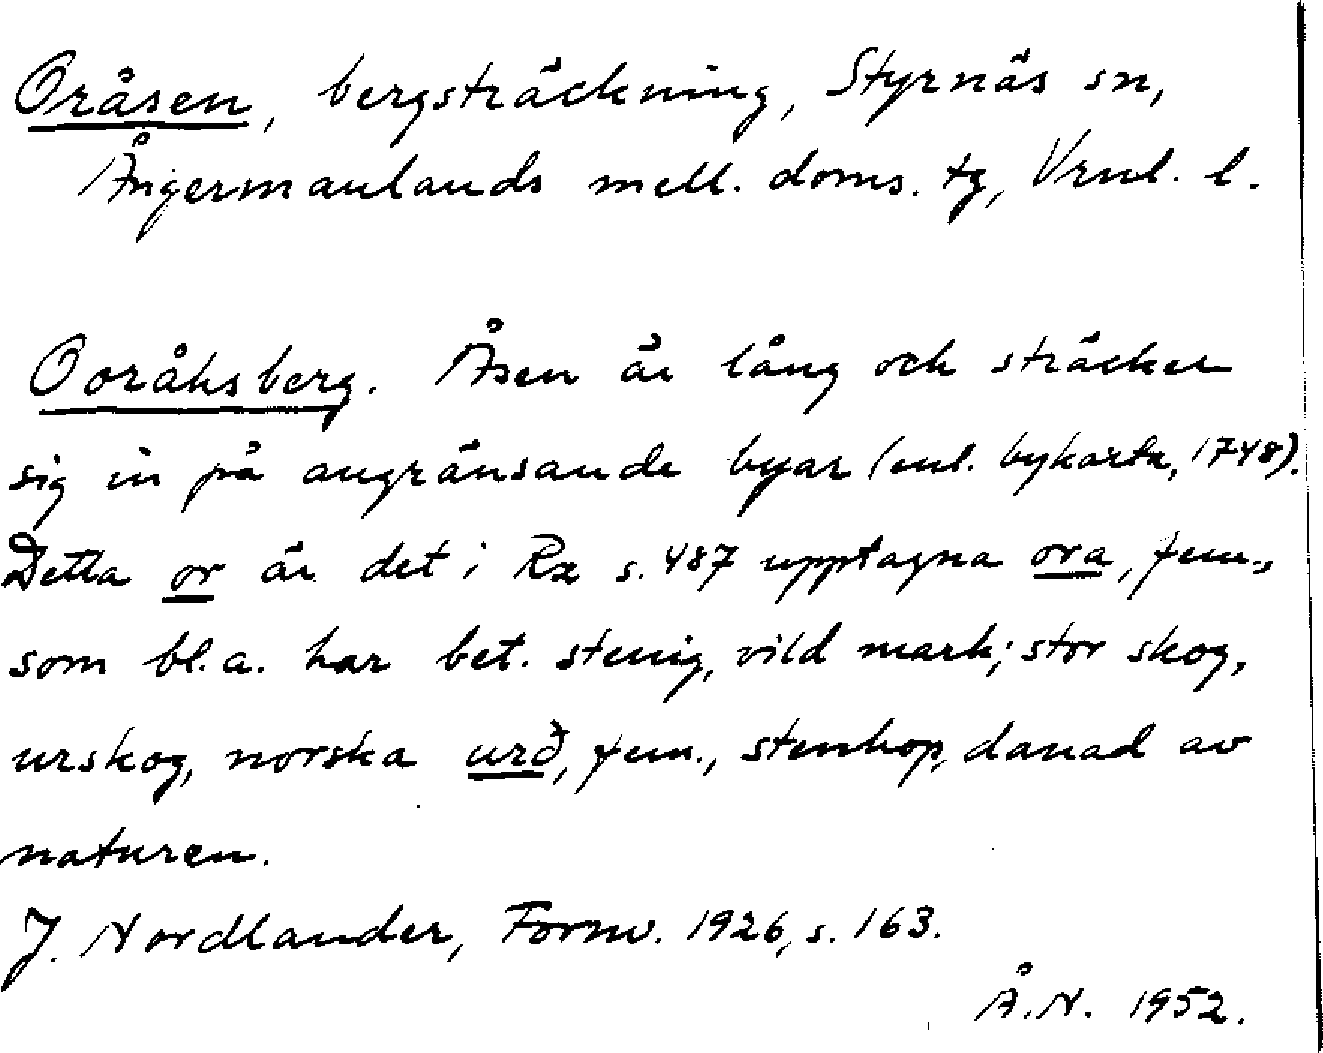 Oråsen, bergsträckning, Styrnäs sn,
Ångermanlands mell. doms. tg, Vrnl. l.
Ooråhsberg. Åsen är lång och sträcker
sig in på angränsande byar (enl. bykarta, 1748).
Detta or är det i Rz s. 487 upptagna ora, fem.,
som bl.a. har bet. stenig, vild mark; stor skog,
urskog, norska urð, fem., stenhop, danad av
naturen.
J. Nordlander, Fornv. 1926, s. 163.
Å.N. 1952.